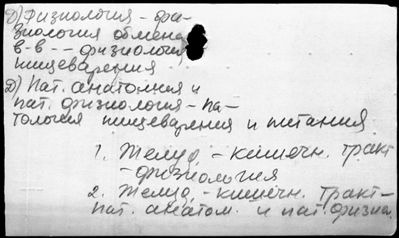 д) Физиология - фи-
зиология обмена
в-в -- физиология
пищеварения
Д) Пат. анатомия и
пат. физиология - па-
тология пищеварения и питания
1. Желуд.-кишечн. тракт
- физиология
2. Желуд.-кишечн. тракт-
пат. анатом. и пат. физиол.